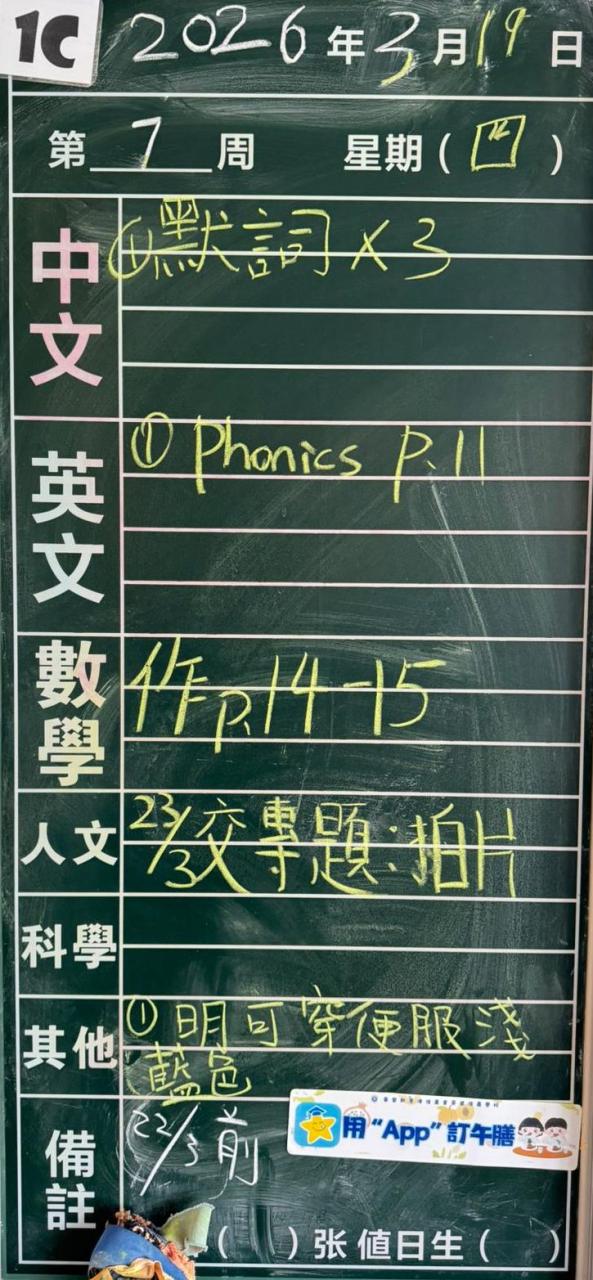 1C 2026年3月19日
第 7 周 星期(四)
中文 ①默詞×3
英文 ① Phonics P.11
數學 作p.14-15
人文 23/3交專題:拍片
科學
其他 ①明可穿便服淺
藍色
備註 22/3前
用“App”訂午膳
( )张 值日生( )